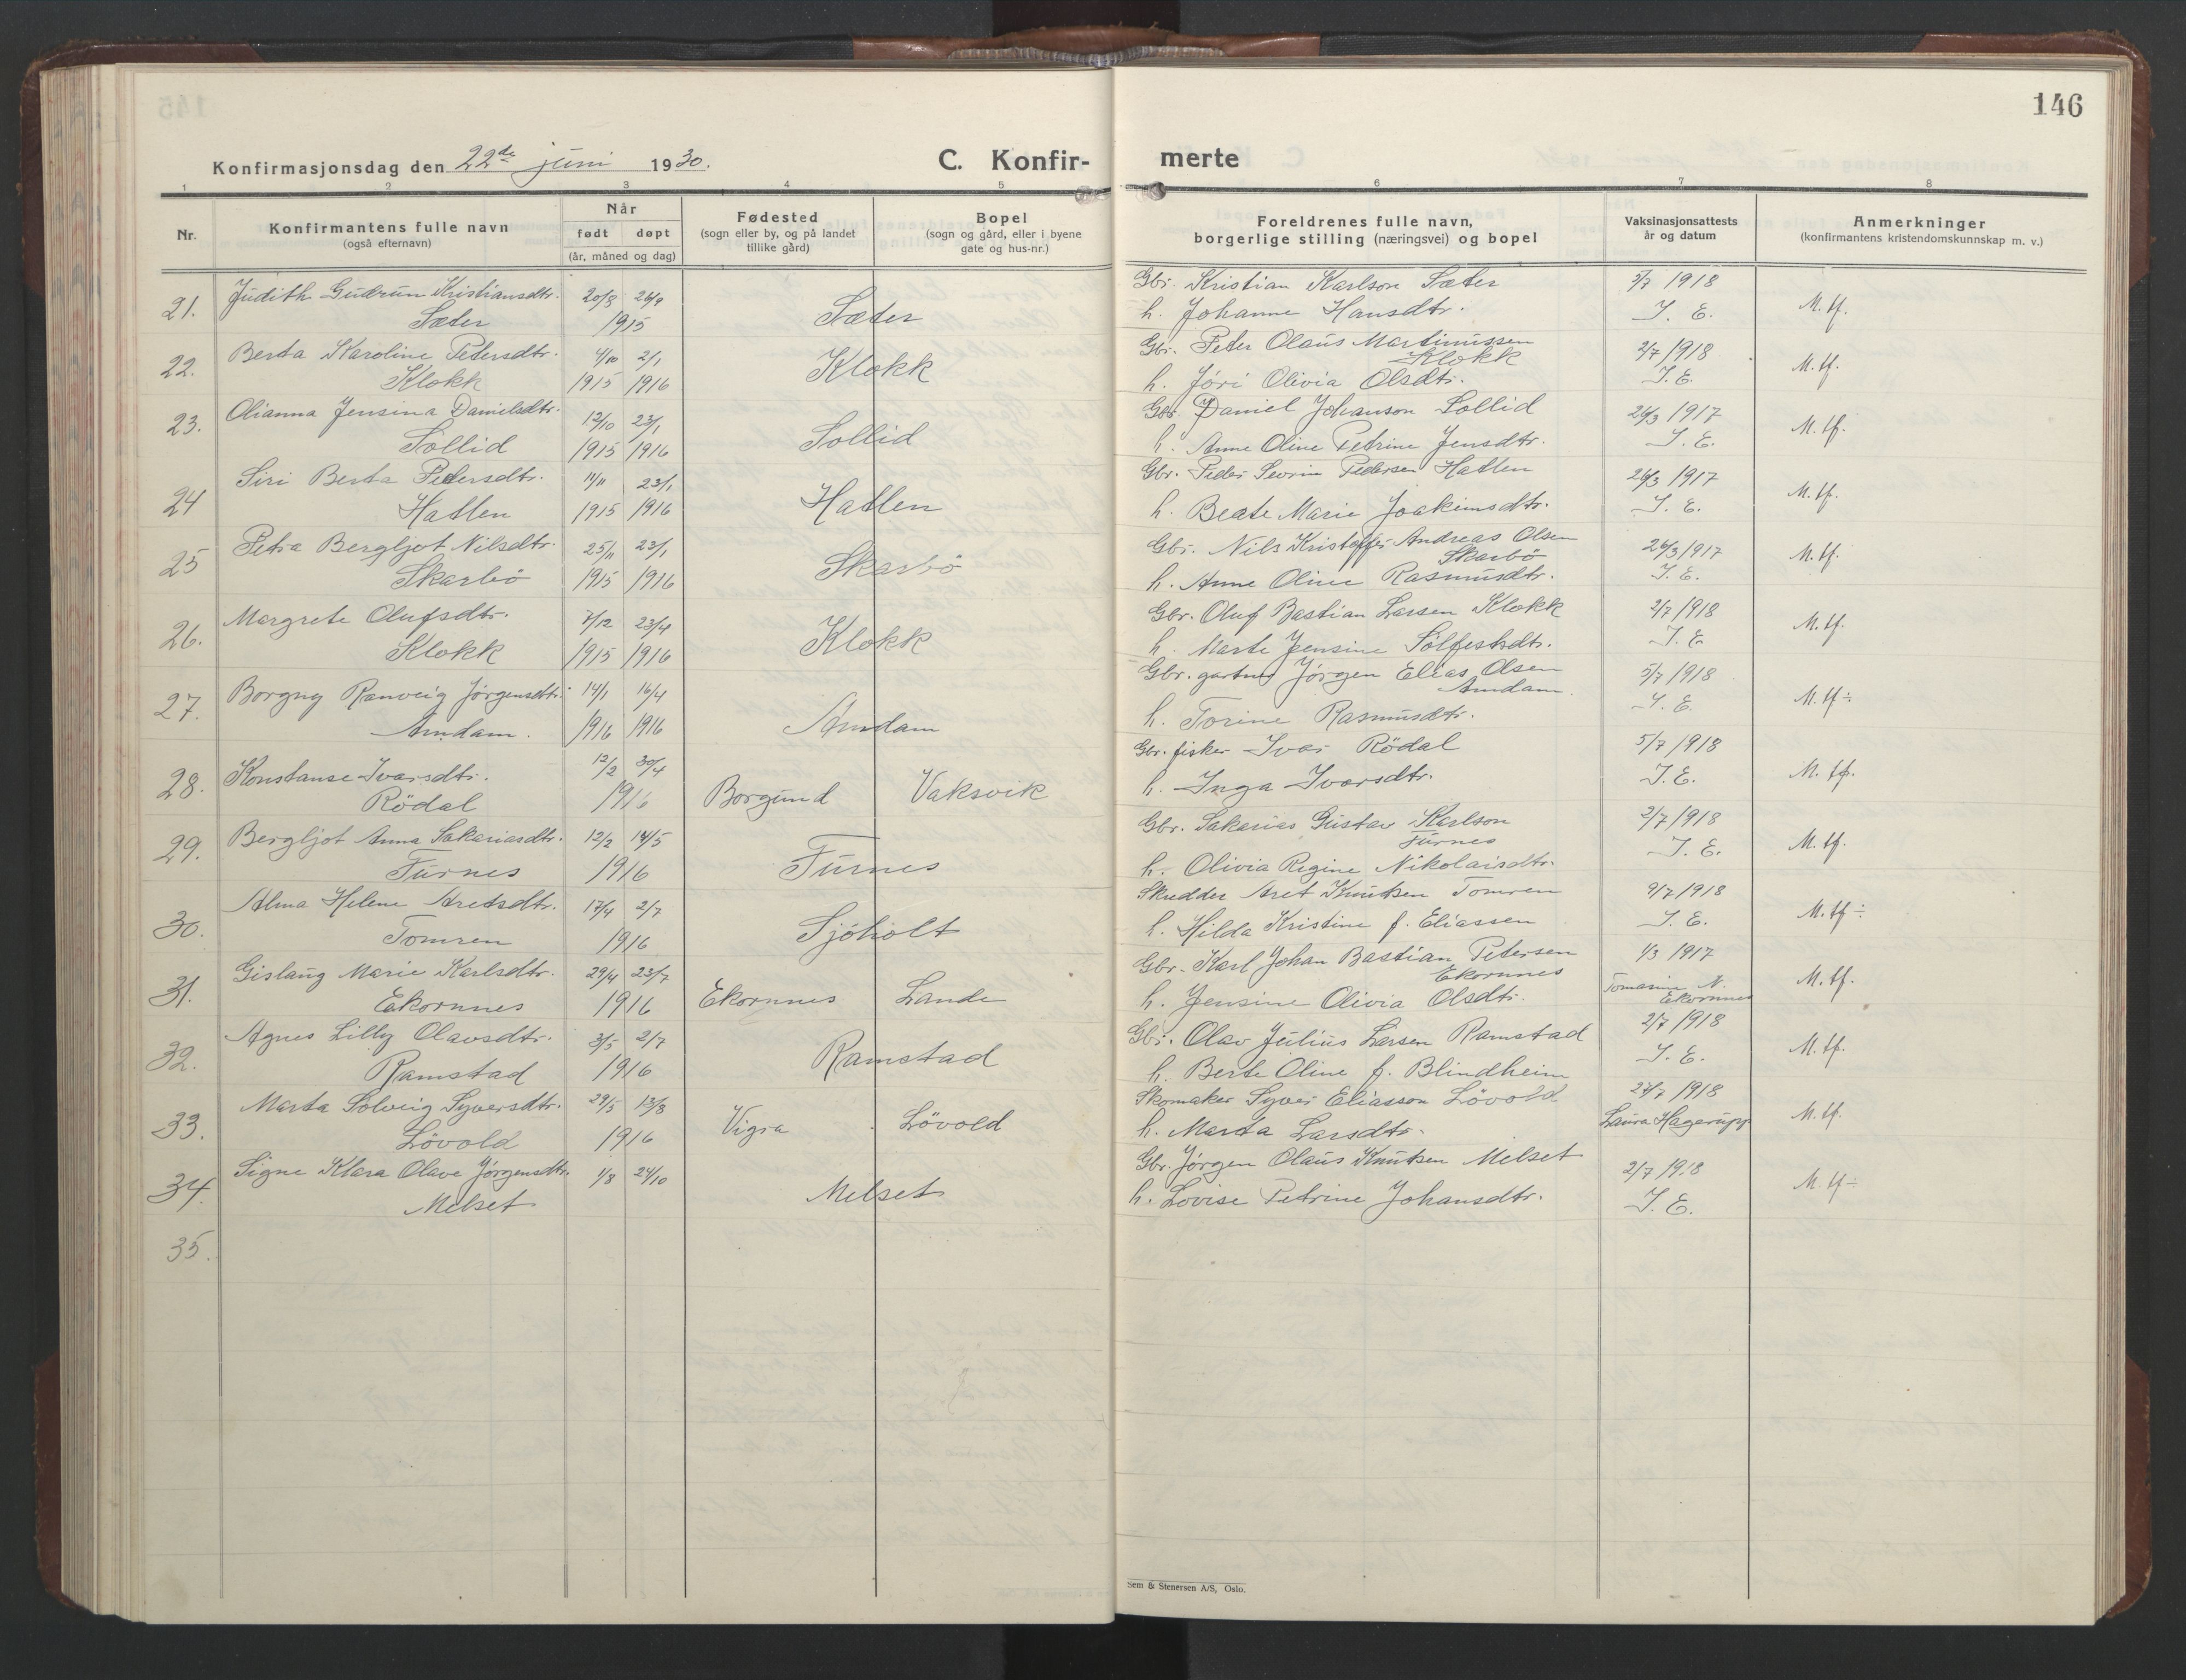 146
Konfirmasjonsdag den 22de juni 1930.
C. Konfir-
merte
1 2 3 4 5 6 7 8
Nr.
Konfirmantens fulle navn
(også efternavn)
Når
født døpt
(år, måned og dag)
Fødested
(sogn eller by, og på landet
tillike gård)
Bopel
(sogn og gård, eller i byene
gate og hus-nr.)
Foreldrenes fulle navn,
borgerlige stilling (næringsvei) og bopel
Vaksinasjonsattests
år og datum
Anmerkninger
(konfirmantens kristendomskunnskap m. v.)
21. Judith Gudrun Kristiansdtr. 20/8 26/9 Gbr. Kristian Karlson Sæter 2/7 1918
Sæter 1915 Sæter h. Johanne Hansdtr. J. E. M. tf.
22. Berta Karoline Petersdtr. 4/10 2/1 Gbr. Peter Olaus Martinussen 2/7 1918
Klokk
Klokk 1915 1916 Klokk h. Jöri Olivia Olsdtr. J. E. M. tf.
23. Olianna Jensina Danielsdtr. 12/10 23/1 Gbr. Daniel Johanson Sollid 26/3 1917
Sollid 1915 1916 Sollid h. Anne Oline Petrine Jensdtr. J. E. M. tf.
24 Siri Berta Pedersdtr. 11/11 23/1 Gbr. Peder Sevrin Pedersen Hatlen 26/3 1917
Hatlen 1915 1916 Hatlen h. Beate Marie Joakimsdtr. J. E. M. tf.
25 Petra Bergljot Nilsdtr. 25/11 23/1 Gbr. Nils Kristoffer Andreas Olsen 26/3 1917
Skarbö
Skarbö 1915 1916 Skarbö h. Anne Oline Rasmusdtr. J. E. M. tf.
26. Margrete Olufsdtr. 7/12 23/4 Gbr. Oluf Bastian Larsen Klokk 2/7 1918
Klokk 1915 1916 Klokk h. Marte Jensine Sölfestsdtr. J. E M. tf.
27. Borgny Ranveig Jörgensdtr. 14/1 16/4 Gbr. gartner Jörgen Elias Olsen 5/7 1918
Amdam.
Amdam. 1916 1916 Amdam h. Torine Rasmusdtr. J. E. M. tf ÷
28. Konstanse Ivarsdtr. 12/2 30/4 Gbr. fisker Ivar Rödal 5/7 1918
Rödal 1916 Borgund Vaksvik h. Inga Ivarsdtr. J. E. M. tf.
29. Bergljot Anna Sakariasdtr. 12/2 14/5 Gbr. Sakarias Gustav Karlson 2/7 1918
Furnes
Furnes 1916 Furnes h. Olivia Regine Nikolaisdtr. J. E. M. tf.
30. Alma Helene Aretsdtr. 17/4 2/7 Skredder Aret Knutsen Tomren 9/7 1918
Tomren 1916 Sjöholt h. Hilda Kristine f. Eliassen J. E. M. tf ÷
31. Gislaug Marie Karlsdtr. 29/4 23/7 Gbr. Karl Johan Bastian Petersen 1/3 1917
Ekornnes
Ekornnes 1916 Ekornnes Lande h. Jensine Olivia Olsdtr. Tomasine N. M. tf.
Ekornnes
32. Agnes Lilly Olavsdtr. 3/5 2/7 Gbr. Olav Julius Larsen Ramstad 2/7 1918
Ramstad 1916 Ramstad h. Berte Oline f. Blindheim J. E. M. tf.
33. Marta Solveig Syversdtr. 29/5 13/8 Skomaker Syver Eliasson Lövold 27/7 1918
Lövold 1916 Vigra Lövold h. Marta Larsdtr. Laura Hagerupp M. tf.
34. Signe Klara Olave Jörgensdtr. 1/8 24/10 Gbr. Jörgen Olaus Knutsen Melset 2/7 1918
Melset Melset h. Lovise Petrine Johansdtr. J. E. M. tf ÷
35.
Sem & Stenersen A/S, Oslo.